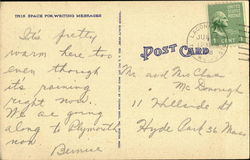 THIS SPACE FOR WRITING MESSAGES
It's pretty
warm here too
even though
it's raining
right now.
We are going
along to Plymouth
now
Bernice
POST CARD
Mr and Mrs Chas
McDonough
11 Hillside St
Hyde Park 36 Mass
LACONIA
1 CENT